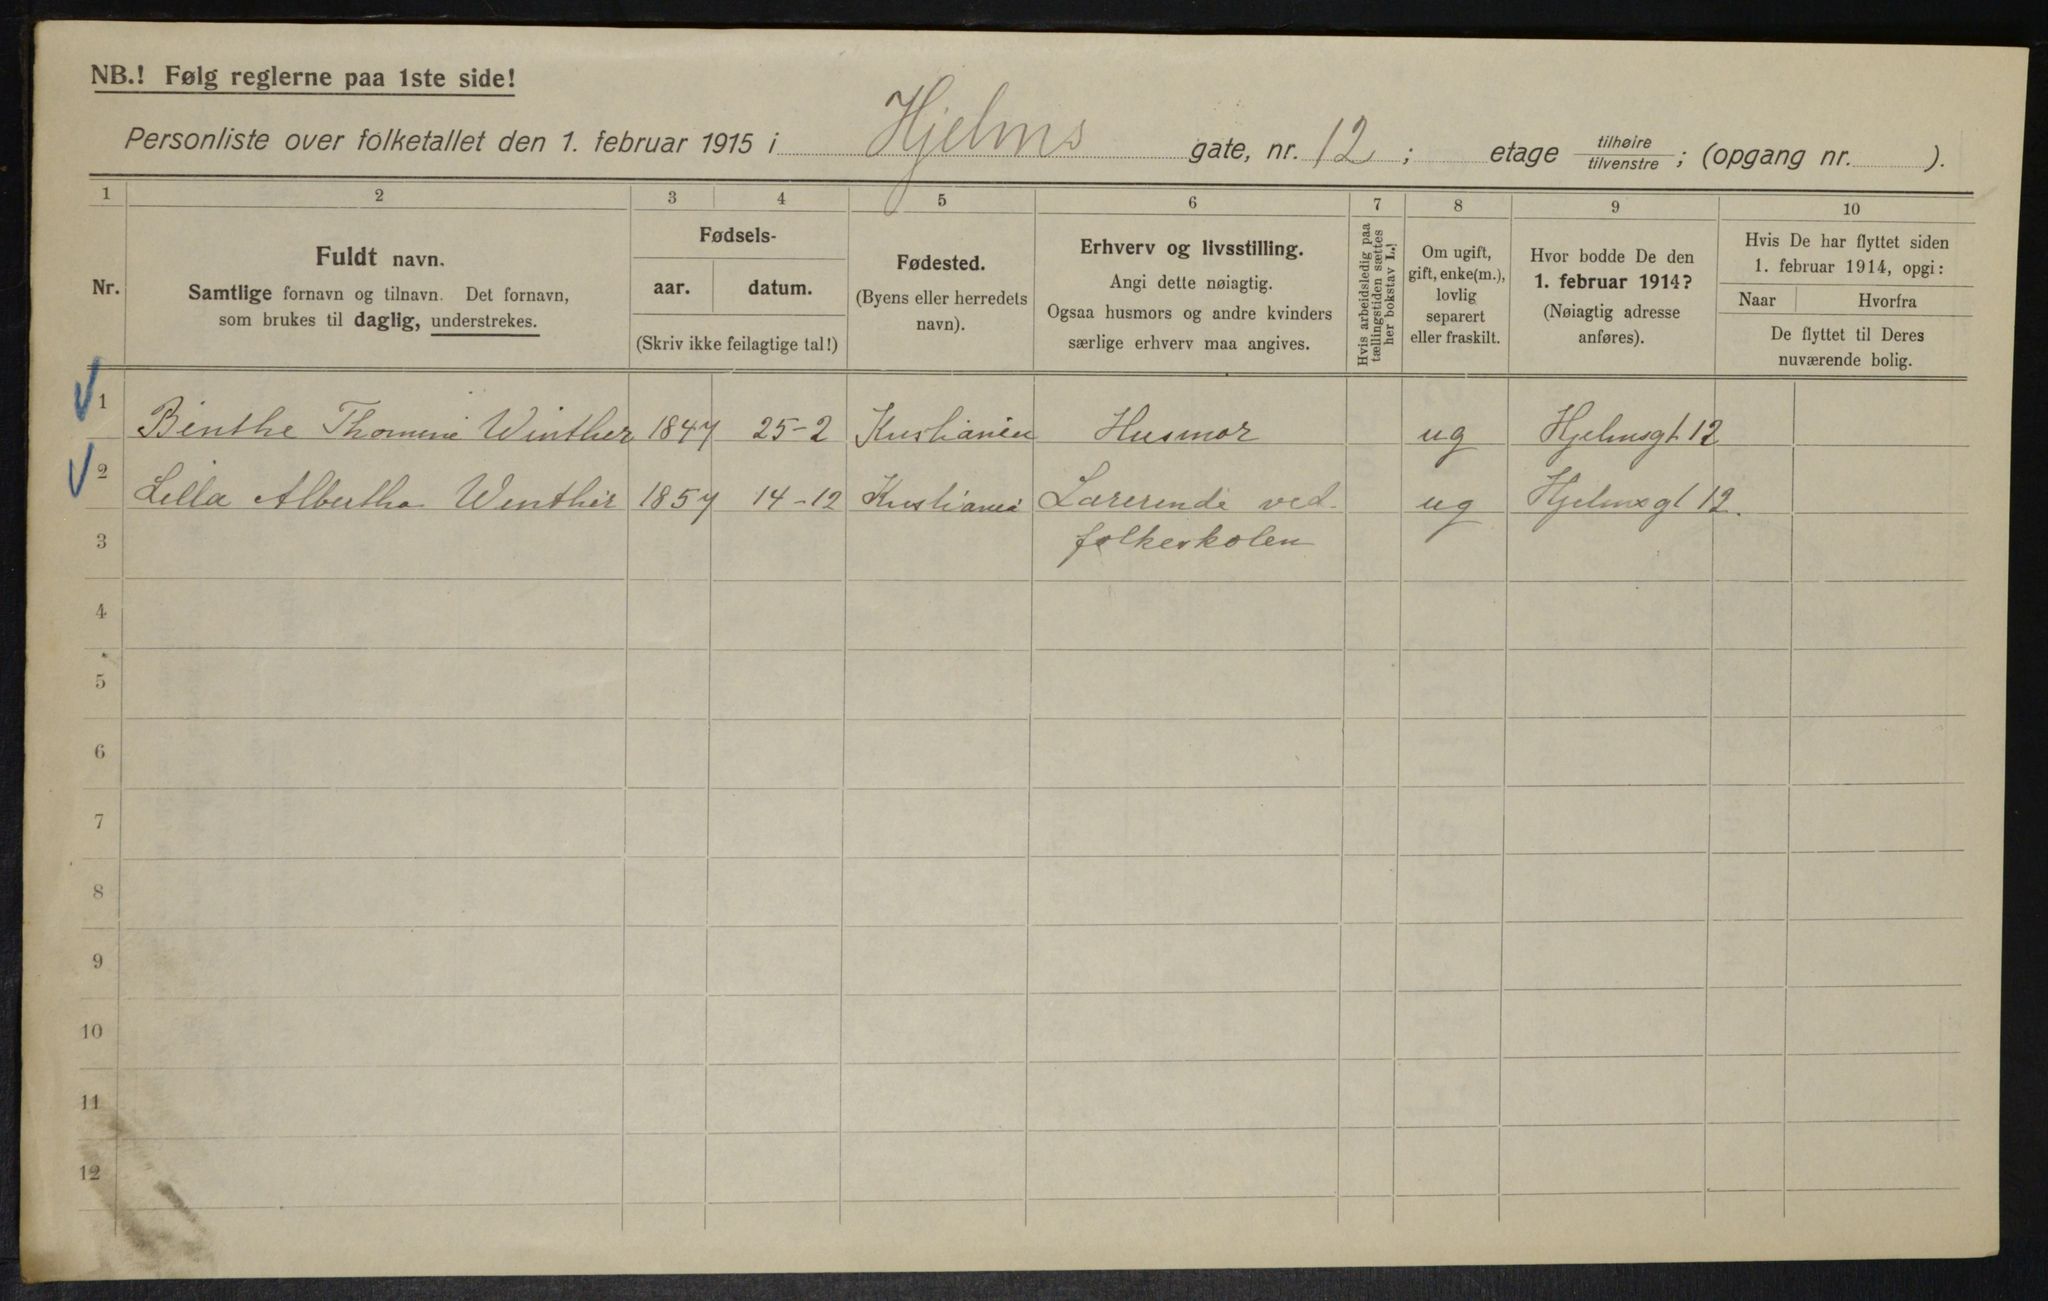 NB.! Følg reglerne paa 1ste side!
Personliste over folketallet den 1. februar 1915 i Hjelms gate, nr. 12 ; etage tilhøire/tilvenstre ; (opgang nr. ).
1 2 3 4 5 6 7 8 9 10
Nr.
Fuldt navn.
Samtlige fornavn og tilnavn. Det fornavn,
som brukes til daglig, understrekes.
Fødsels-
aar. datum.
(Skriv ikke feilagtige tal!)
Fødested.
(Byens eller herredets
navn).
Erhverv og livsstilling.
Angi dette nøiagtig.
Ogsaa husmors og andre kvinders
særlige erhverv maa angives.
Hvis arbeidsledig paa
tællingstiden sættes
her bokstav L.!
Om ugift,
gift, enke(m.),
lovlig
separert
eller fraskilt.
Hvor bodde De den
1. februar 1914?
(Nøiagtig adresse
anføres).
Hvis De har flyttet siden
1. februar 1914, opgi:
Naar Hvorfra
De flyttet til Deres
nuværende bolig.
1 Binthe Thomine Winther 1847 25-2 Kristiania Husmor ug Hjelmsgt 12
2 Lilla Albertha Winther 1857 14-12 Kristiania Lærerinde ved ug Hjelmsgt 12.
3 folkeskolen
4
5
6
7
8
9
10
11
12